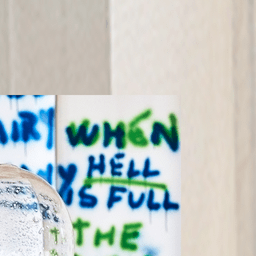 AIRY WHEN
HELL
IS FULL
THE